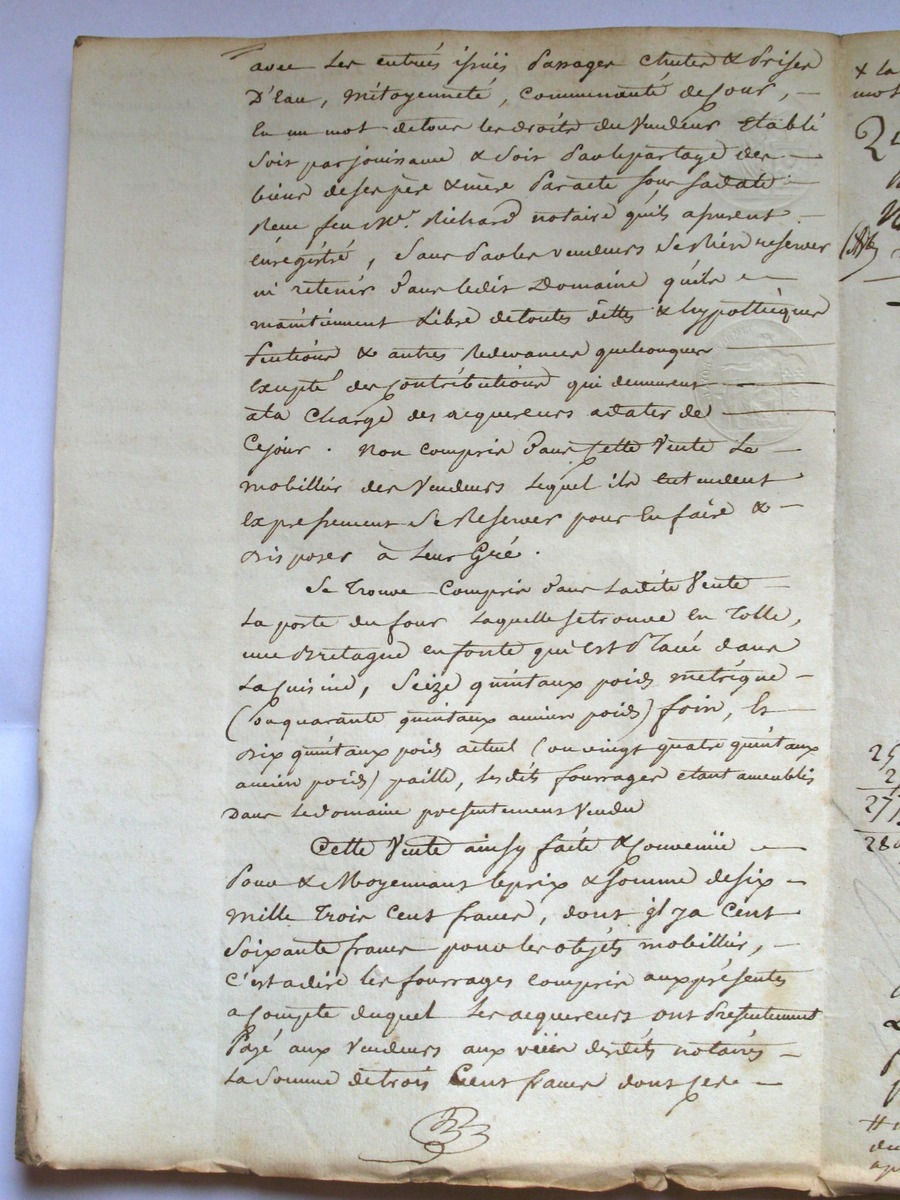 avec Les entrués issuës Passages chutes & Prises
D'Eau, mitoyenneté, Communauté de Cour, —
En un mot de tous les droits du Vendeur Etablé
Soit par jouissance & Soit Par le partage des —
biens de ses père & mère Par acte sous sa date —
Reçu feu Me. Richard notaire qu'ils assurent —
Enrégistré, Sans Par les vendeurs Se Rien reserver
ni retenir Dans ledit Domaine qu'ils —
maintiennent Libre de toutes dettes & hyppothèques
Pentions & autres Redevances quelconques —
Exepté des Contributions qui demeurent —
a la Charge des acquereurs a dater de —
Ce jour. Non Compris Dans Cette Vente Le —
mobillier des Vendeurs Lequel ils Entendent
Expressement Se Reserver pour En faire & —
Disposer à Leur Gré.
Se Trouve Compris Dans Ladite Vente —
La porte du four Laquelle se trouve En Tolle,
une Bretagne en fonte qui Est Placé dans
La Cuisine, Seize quintaux poids metrique —
(Ou quarante quintaux ancien poids) foin, Et —
Dix quintaux poids actuel (ou vingt quatre quintaux
ancien poids) paille, Lesdits fourrages etant ameublis
Dans Le domaine presentement Vendu
Cette Vente ainsy faite & Convenüe —
Pour & Moyennant le prix & Somme de six —
mille Trois Cent francs, dont jl y a Cent
Soixante francs pour les objéts mobilliers, —
C'est a dire les fourrages compris aux présentes
a Compte duquel Les acquereurs ont Presentement
Payé aux Vendeurs aux vüës desdits notaires —
La Somme de trois Cent francs dont —
& la
mot
25
2
277
280